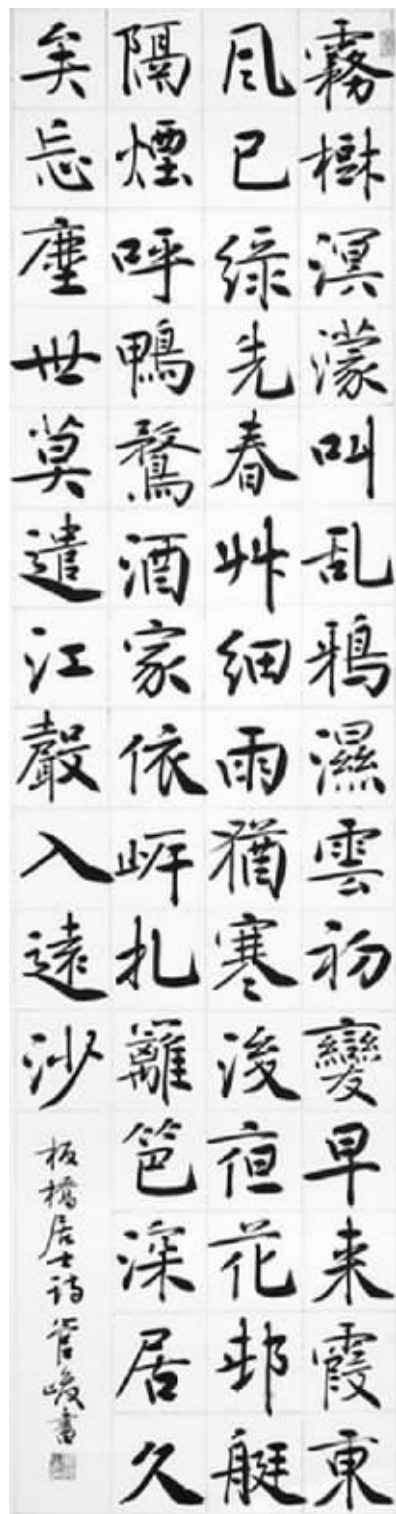 霧樹溟濛叫乱鴉濕雲初變早来霞東
風已綠先春艸細雨猶寒浚夜花邨艇
隔煙呼鴨鶩酒家依岸扎籬笆深居久
矣忘塵世莫遣江聲入遠沙
板橋居士詩管峻書